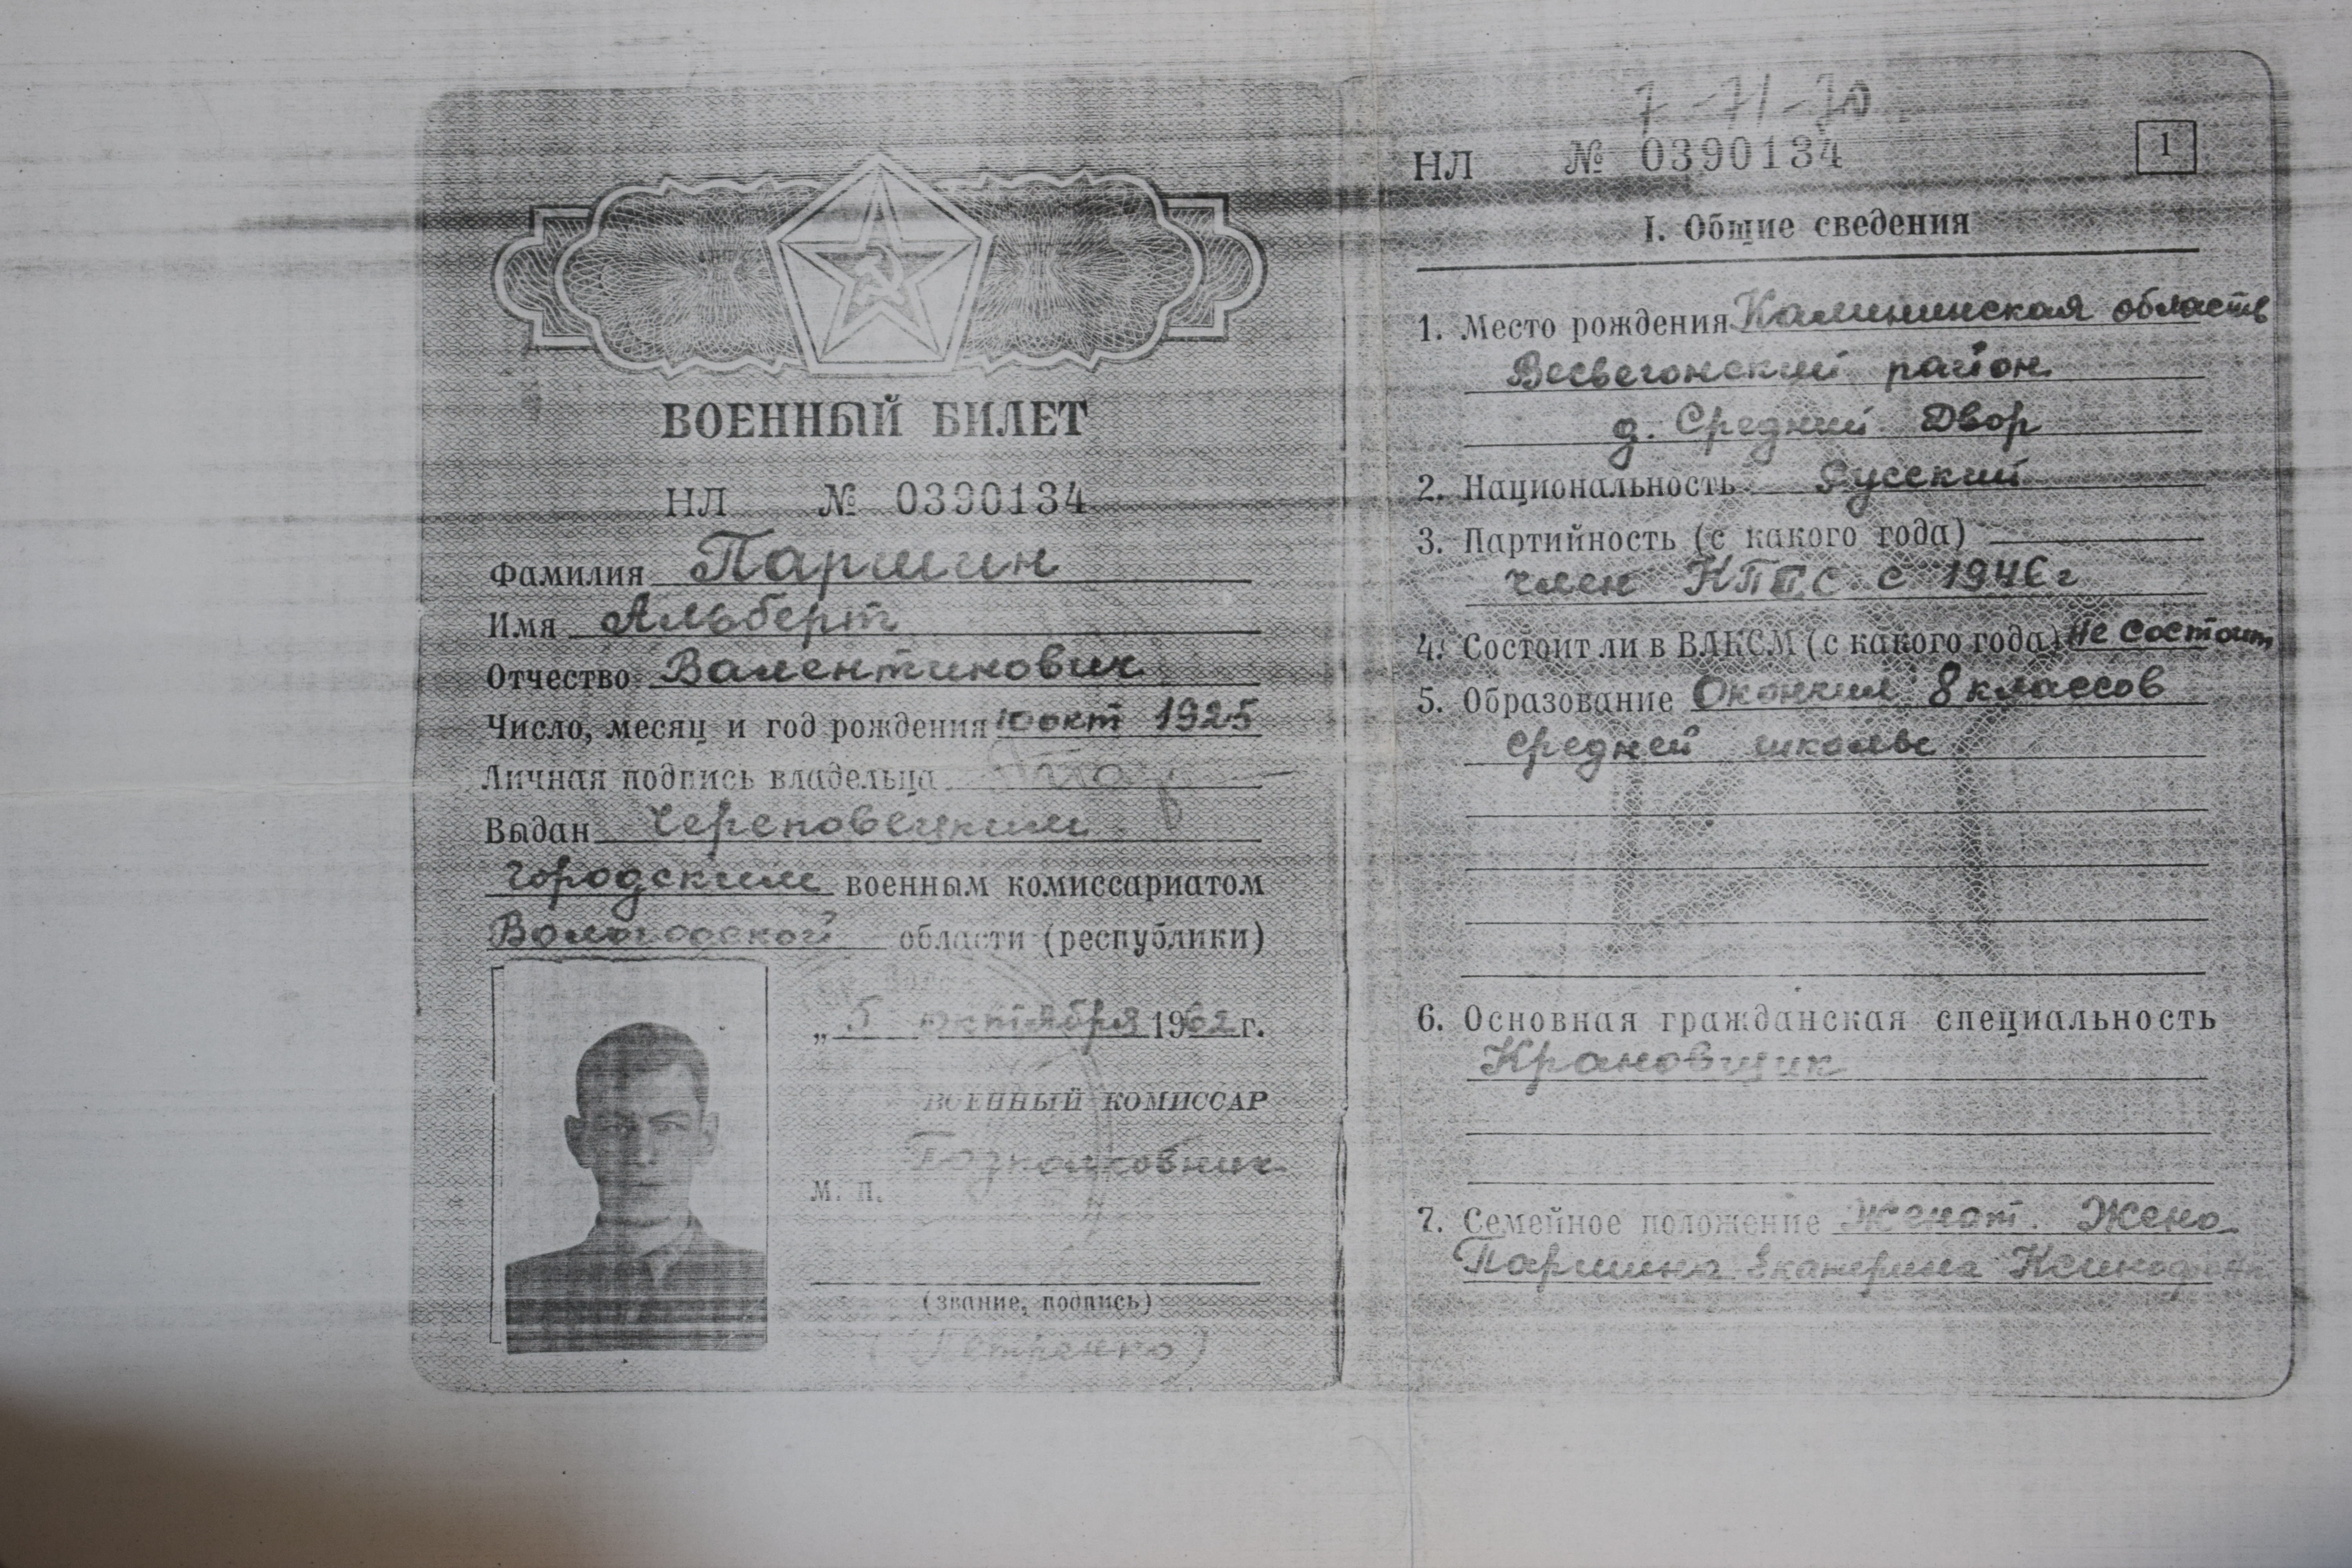 ВОЕННЫЙ БИЛЕТ
НЛ № 0390134
Фамилия Паршин
Имя Альберт
Отчество Валентинович
Число, месяц и год рождения 10 окт 1925
Личная подпись владельца
Выдан Череповецким
городским военным комиссариатом
Вологодской области (республики)
„ 5 октября 1962 г.
ВОЕННЫЙ КОМИССАР
Подполковник
М. П.
(звание, подпись)
(Петренко)
7-71-70
НЛ № 0390134
1
I. Общие сведения
1. Место рождения Калининская область
Весьегонский район
д. Средний Двор
2. Национальность Русский
3. Партийность (с какого года)
член КПСС с 1946 г
4. Состоит ли в ВЛКСМ (с какого года) Не состоит
5. Образование Окончил 8 классов
средней школы
6. Основная гражданская специальность
Крановщик
7. Семейное положение Женат. Жена
Паршина Екатерина